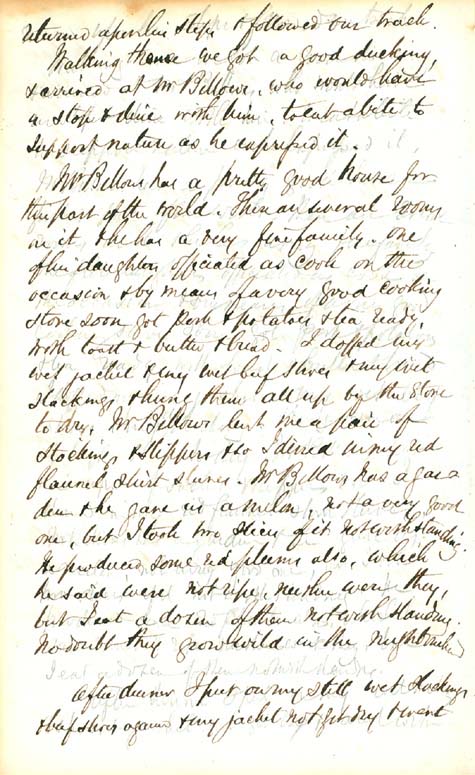 returned upon his steps & followed our track.
Walking thence we got a good ducking,
& arrived at Mr Billows, who would have
us stop & dine with him, to eat a bite to
support nature as he expressed it.
Mr Billows has a pretty good house for
this part of the world. There are several rooms
in it, & he has a very fine family. One
of his daughters officiated as cook on the
occasion & by means of a very good cooking
stove soon got pork & potatoes & tea ready,
with toast & butter & bread. I doffed my
wet jacket & my wet beef shoes & my wet
stockings & hung them all up by the stove
to dry. Mr Billows lent me a pair of
stockings & slippers & so I dined in my red
flannel shirt sleeves. Mr Billows has a gar-
den & he gave us a melon, not a very good
one, but I took two slices of it notwithstanding.
He produced some red plums also, which
he said were not ripe, neither were they,
but I eat a dozen of them notwithstanding.
No doubt they grow wild in the neighbourhood
After dinner I put on my still wet stockings
& beef shoes again & my jacket not yet dry & went